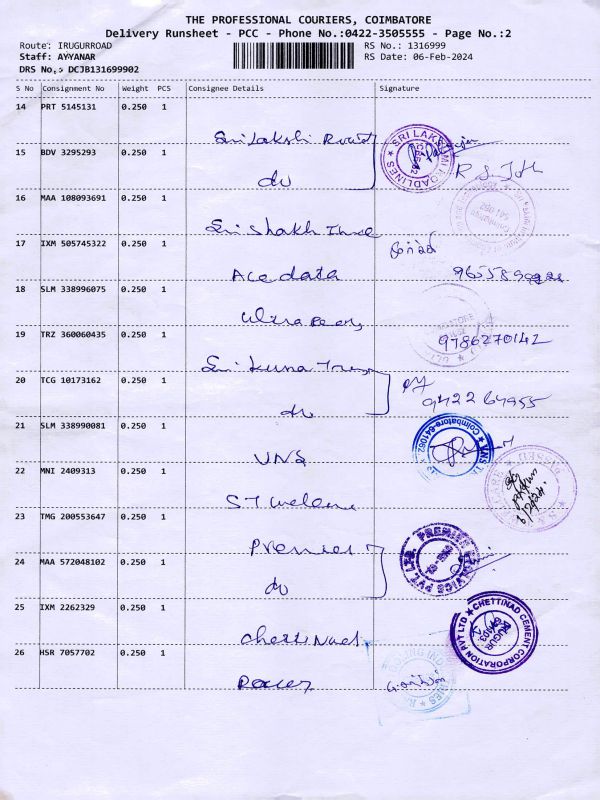 THE PROFESSIONAL COURIERS, COIMBATORE
Delivery Runsheet - PCC - Phone No.:0422-3505555 - Page No.:2
Route: IRUGURROAD RS No.: 1316999
Staff: AYYANAR RS Date: 06-Feb-2024
DRS No.: DCJB131699902
S No Consignment No Weight PCS Consignee Details Signature
14 PRT 5145131 0.250 1
Sri Lakshi Road
SRI LAKSHMI ROADLINES
15 BDV 3295293 0.250 1
do
16 MAA 108093691 0.250 1
Sri Shakthi
641 062
17 IXM 505745322 0.250 1
Ace data
18 SLM 338996075 0.250 1
Ultra
19 TRZ 360060435 0.250 1
9786270142
Sri
20 TCG 10173162 0.250 1
9422 64955
do
21 SLM 338990081 0.250 1
VNS
Coimbatore-641062
22 MNI 2409313 0.250 1
ST
6/2/24
23 TMG 200553647 0.250 1
Premier
PREMIER
24 MAA 572048102 0.250 1
do
PVT LTD.
25 IXM 2262329 0.250 1
Chettinad
CHETTINAD CEMENT CORPORATION PVT LTD
26 HSR 7057702 0.250 1